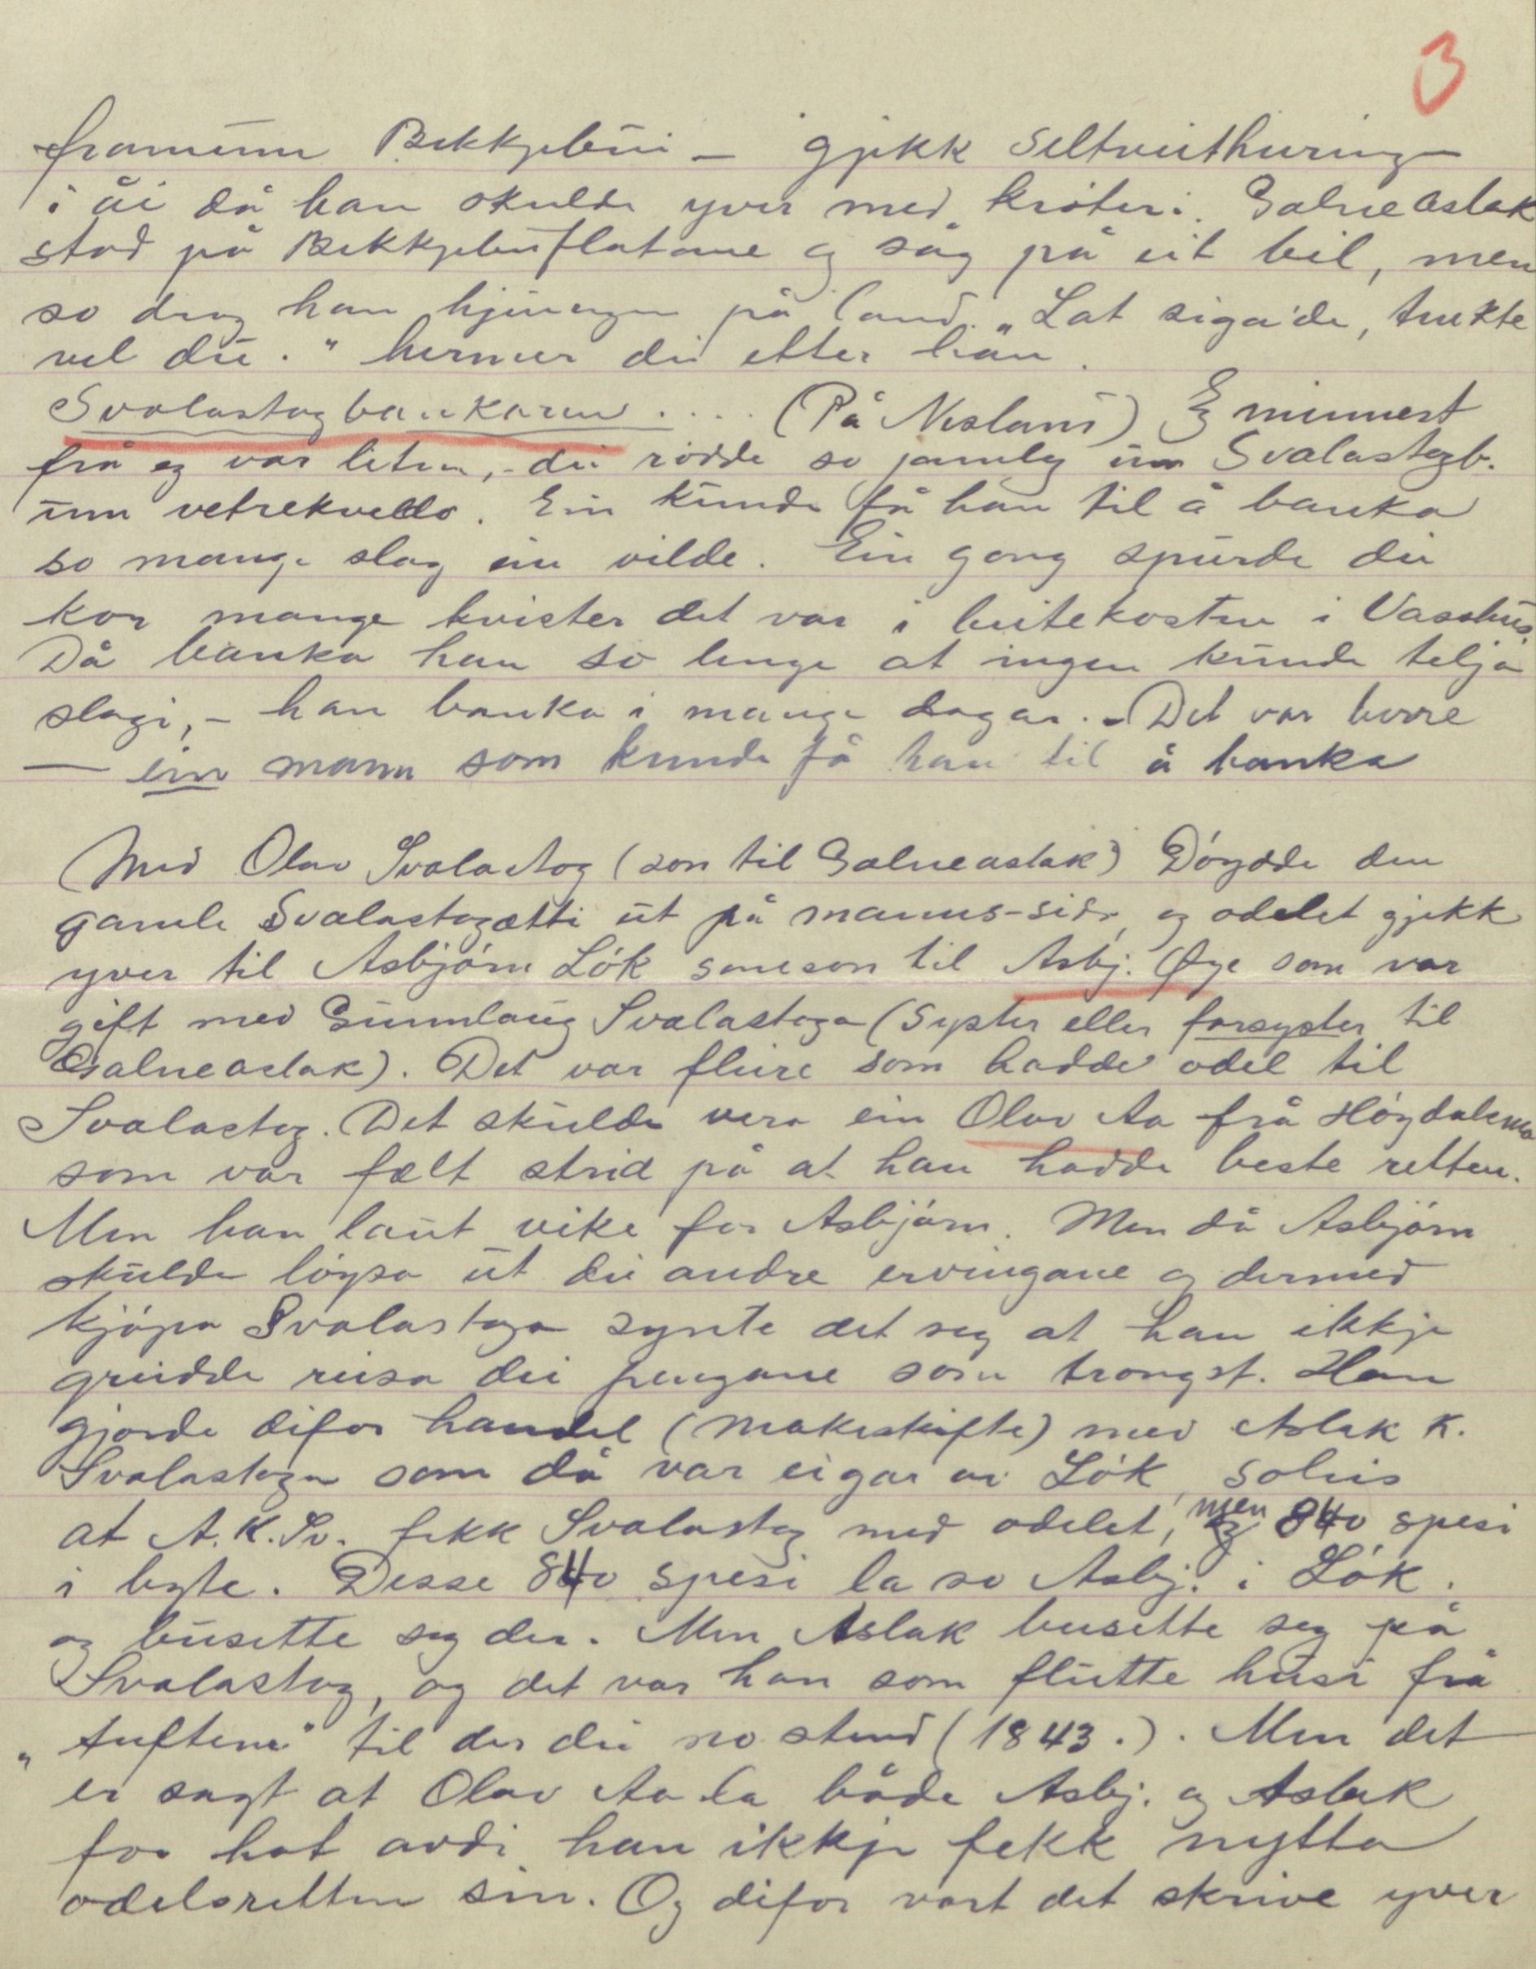 3
framunn Bekkjebui — gjekk Seltveithuring
i åi då han skulde yver med krøter. Galne Aslak
stod på Bekkjebuflatane og såg på eit bil, men
so drog han hjuringen på land. „Lat siga 'de, tukte
vel du." hermer dei etter han.
Svalastogbankaren .... (På Nesland) Eg minnest
frå eg var liten, - dei rødde so jamleg um Svalastogb.
um vetrekveldo. Ein kunde få han til å banka
so mange slag ein vilde. Ein gong spurde dei
kor mange kvister det var i beitekosten i Vasshus
Då banka han so lenge at ingen kunde telja
slagi, - han banka i mange dagar. - Det var berre
— ein mann som kunde få han til å banka
Med Olav Svalastog (son til Galneaslak) Døydde den
gamle Svalastogætti ut på manns-sida, og odelet gjekk
yver til Asbjørn Løk soneson til Asbj. Øye som var
gift med Gunnlaug Svalastoga (Syster eller farsyster til
Galneaslak). Det var fleire som hadde odel til
Svalastog. Det skulde vera ein Olav Aa frå Høydalsmo
som var fælt strid på at han hadde beste retten.
Men han laut vike for Asbjørn. Men då Asbjørn
skulde løysa ut dei andre ervingane og dermed
kjøpa Svalastoga synte det seg at han ikkje
greidde reisa dei pengane som trongst. Han
gjorde difor handel (makeskifte) med Aslak K.
Svalastoga som då var eigar av Løk, soleis
at A.K.Sv. fekk Svalastog med odelet, men 840 spesi
i byte. Desse 840 spesi la so Asbj. i Løk.
og busette seg der. Men Aslak busette seg på
Svalastog, og det var han som flutte husi frå
„tuftene" til der dei no stend (1843.). Men det
er sagt at Olav Aa la både Asbj. og Aslak
for hat avdi han ikkje fekk nytta
odelsretten sin. Og difor vart det skrive yver